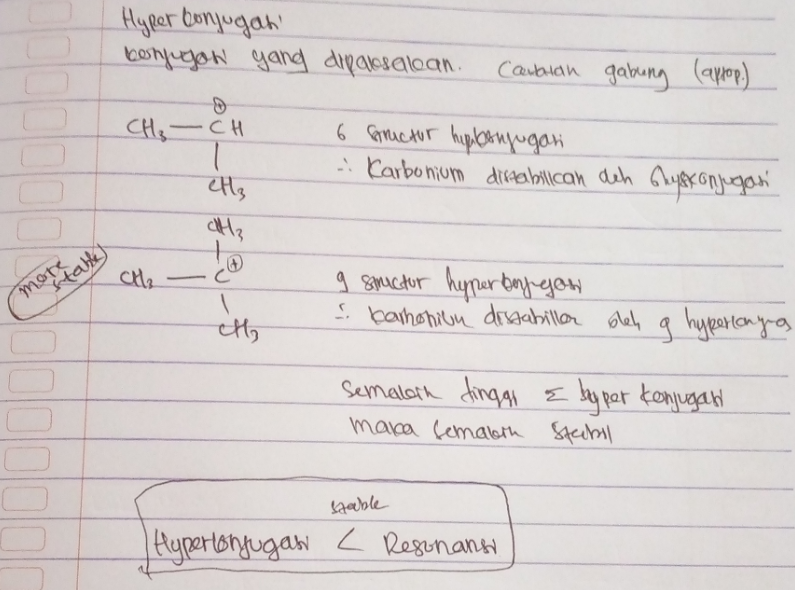 Hyperkonjugasi
konjugasi yang dipaksakan. (aprop.)
⊕
CH₃ — CH 6 structur hypkonjugasi
|
∴ Karbonium distabilkan oleh 6 hyperkonjugasi
CH₃
CH₃
|
more stable
CH₃ — C⊕ 9 structur hyperkonjugasi
|
CH₃
∴ distabilkan oleh 9
Semakin tinggi Σ hyper konjugasi
maka semakin stabil
stable
Hyperkonjugasi < Resonansi